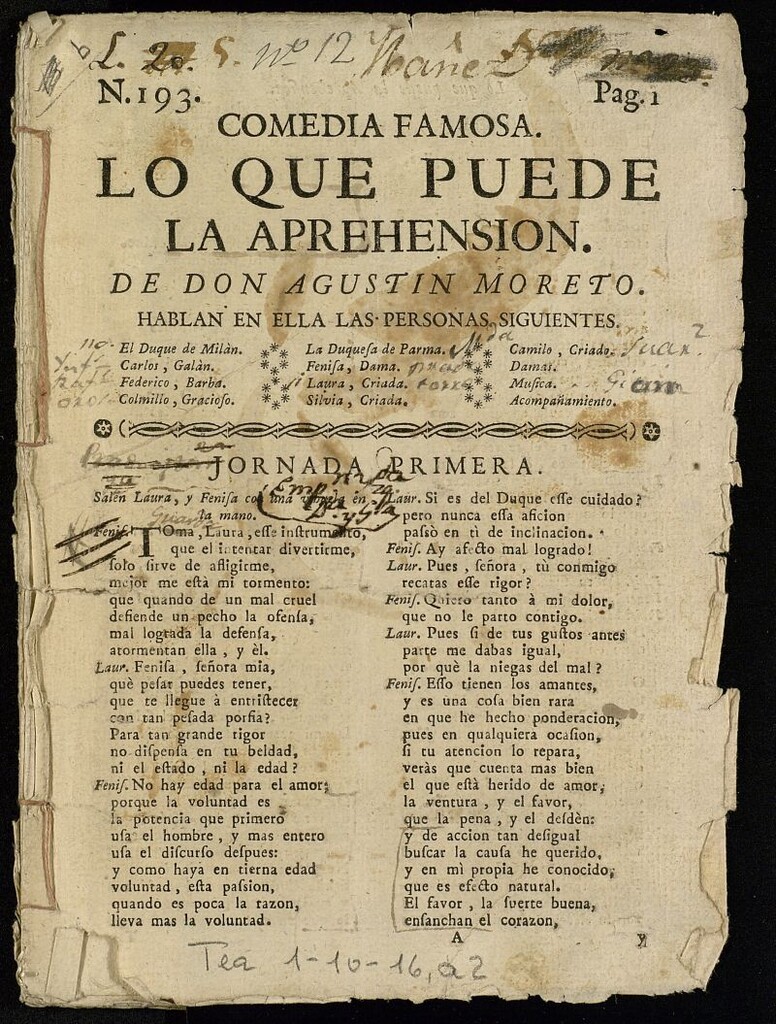 L. 2o. S. nº 12 Ibáñez
N.193. Pag. 1
COMEDIA FAMOSA.
LO QUE PUEDE
LA APREHENSION.
DE DON AGUSTIN MORETO.
HABLAN EN ELLA LAS PERSONAS SIGUIENTES.
El Duque de Milàn.
Carlos, Galàn.
Federico, Barba.
Colmillo, Gracioſo.
La Duqueſa de Parma.
Feniſa, Dama.
Laura, Criada.
Silvia, Criada.
Camilo, Criado.
Damas.
Muſica.
Acompañamiento.
JORNADA PRIMERA.
Salen Laura, y Feniſa con una vihuela en
la mano.
Feniſ. TOma, Laura, eſſe inſtrumento,
que el intentar divertirme,
ſolo ſirve de afligirme,
mejor me eſtà mi tormento:
que quando de un mal cruel
defiende un pecho la ofenſa,
mal lograda la defenſa,
atormentan ella, y èl.
Laur. Feniſa, ſeñora mia,
què peſar puedes tener,
que te llegue à entriſtecer
con tan peſada porfia?
Para tan grande rigor
no diſpenſa en tu beldad,
ni el eſtado, ni la edad?
Feniſ. No hay edad para el amor;
porque la voluntad es
la potencia que primero
uſa el hombre, y mas entero
uſa el diſcurſo deſpues:
y como haya en tierna edad
voluntad, eſta paſsion,
quando es poca la razon,
lleva mas la voluntad.
Laur. Si es del Duque eſſe cuidado?
pero nunca eſſa aficion
paſsò en tì de inclinacion.
Feniſ. Ay afecto mal logrado!
Laur. Pues, ſeñora, tù conmigo
recatas eſſe rigor?
Feniſ. Quiero tanto à mi dolor,
que no le parto contigo.
Laur. Pues ſi de tus guſtos antes
parte me dabas igual,
por què la niegas del mal?
Feniſ. Eſſo tienen los amantes,
y es una coſa bien rara
en que he hecho ponderacion,
pues en qualquiera ocaſion,
ſi tu atencion lo repara,
veràs que cuenta mas bien
el que eſtà herido de amor,
la ventura, y el favor,
que la pena, y el deſdèn:
y de accion tan deſigual
buſcar la cauſa he querido,
y en mì propia he conocido,
que es efecto natural.
El favor, la ſuerte buena,
enſanchan el corazon,
A y
Tea 1-10-16, a2